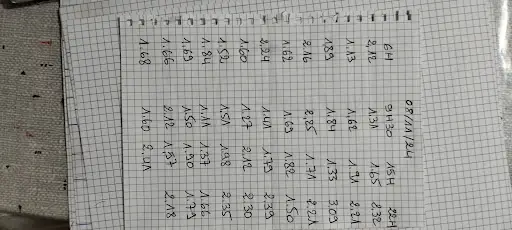 08/11/24
6H 9H30 15H 22H
2,12 1.31 1.65 2.32
1.13 1,62 1.91 2.21
1.89 1.84 1.33 3.09
2.16 2.25 1.71 2.21
1.62 1.69 1.82 1.50
2.24 1.41 1.79 2.39
1.60 1.27 2.12 2.30
1.52 1.51 1.98 2.35
1.84 1.11 1.37 1.66
1.69 1.50 1.90 1.79
1.66 2.12 1.57 2.18
1.68 1.60 2.41